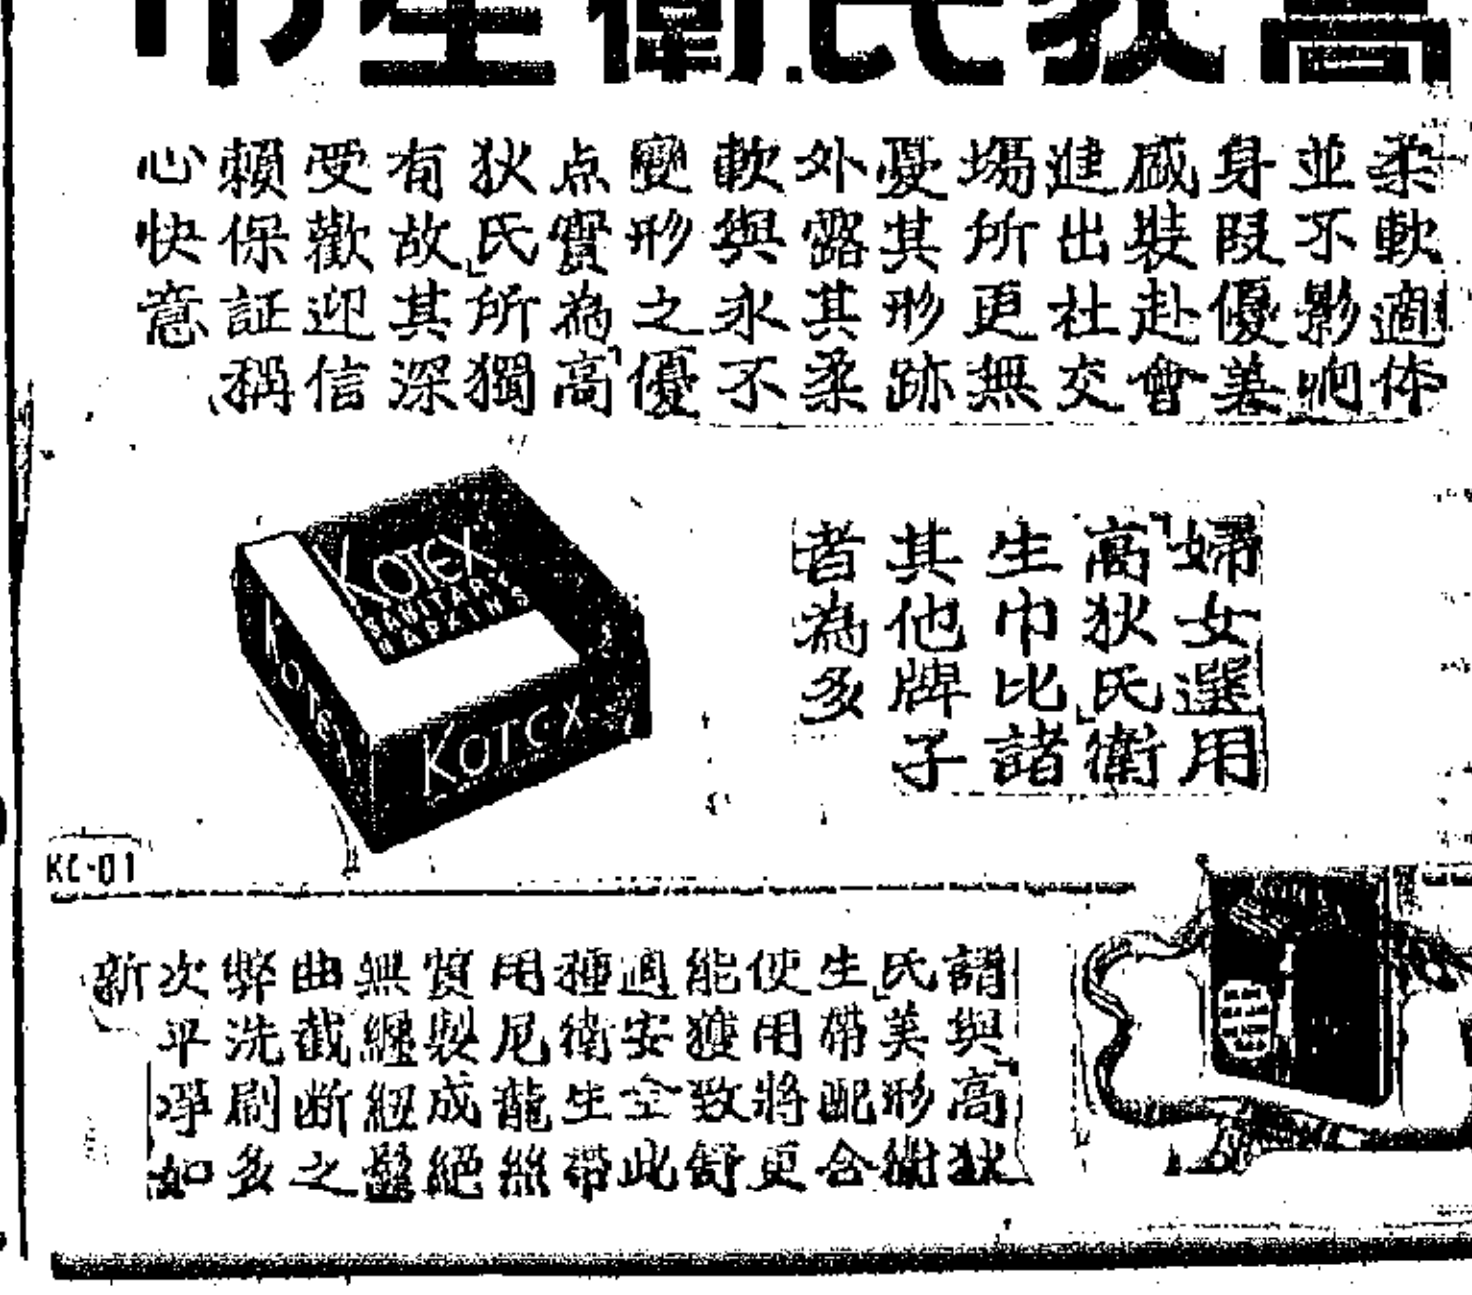 高狄氏衛生巾
柔軟適体
並不影响
身段優美
感裝赴會
進出社交
場所更無
憂其形跡
外露其柔
軟與永不
變形之優
点實為「高
狄氏」所獨
有故其深
受歡迎信
賴保証稱
心快意
婦女選用
「高狄氏」衛
生巾比諸
其他牌子
者為多
KOTEX
SANITARY
NAPKINS
KOTEX
KOTEX
KC-01
請與「高狄
氏」美形衛
生帶配合
使用將更
能獲致舒
適安全此
種衛生帶
用尼龍絲
質製成絕
無纏紐鬆
曲截断之
弊洗刷多
次平淨如
新